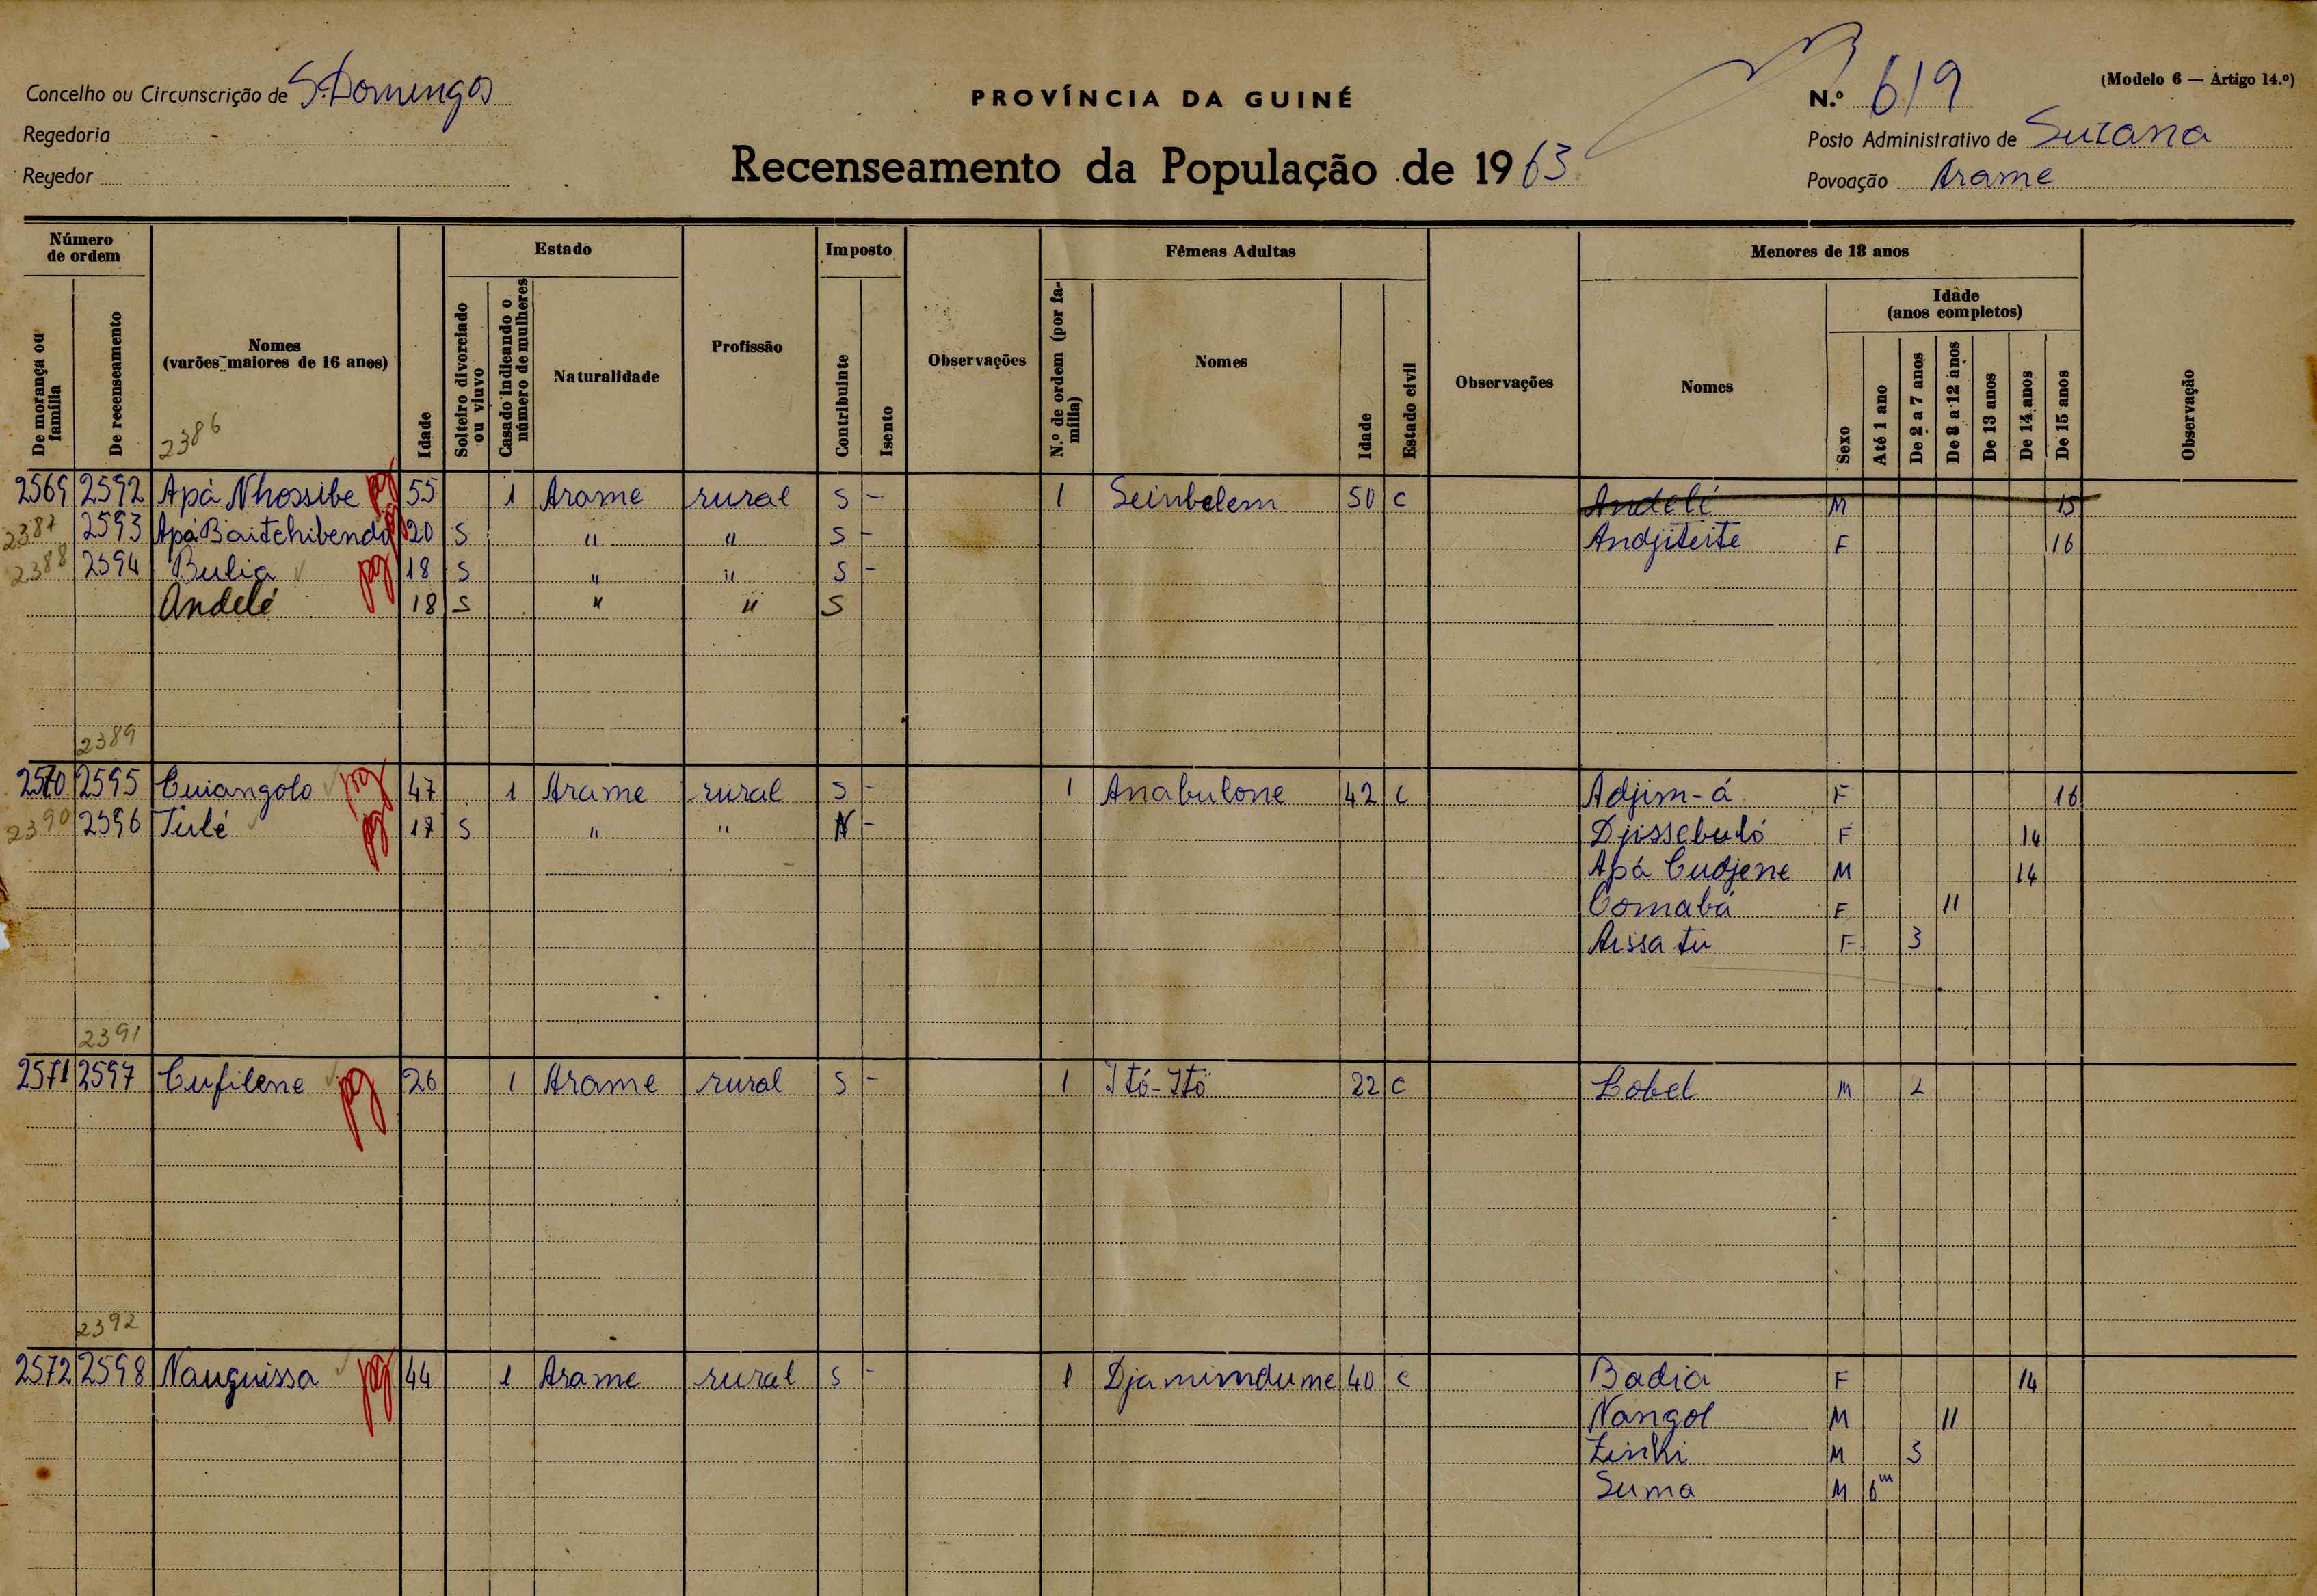 Concelho ou Circunscrição de S. Domingos
Regedoria
Regedor
PROVÍNCIA DA GUINÉ
Recenseamento da População de 1963
(Modelo 6 — Artigo 14.º)
N.º 619
Posto Administrativo de Suzana
Povoação Arame
Número de ordem
De morança ou família
De recenseamento
Nomes (varões maiores de 16 anos)
2386
Idade
Estado
Solteiro divorciado ou viuvo
Casado indicando o número de mulheres
Naturalidade
Profissão
Imposto
Contribuinte
Isento
Observações
Fêmeas Adultas
N.º de ordem (por família)
Nomes
Idade
Estado civil
Observações
Menores de 18 anos
Nomes
Sexo
Idade (anos completos)
Até 1 ano
De 2 a 7 anos
De 8 a 12 anos
De 13 anos
De 14 anos
De 15 anos
Observação
2569 2592 Apá Nhossibe pg 55 1 Arame rural S - 1 Seinbelem 50 C Andelé M 15
2387 2593 Apá Baitchibendo pg 20 S " " S - Andjiteite F 16
2388 2594 Bulia pg 18 S " " S -
Andelé 18 S " " S
2389
2570 2595 Cuiangolo pg 47 1 Arame rural S - 1 Anabulone 42 C Adjim-á F 16
2390 2596 Tulé pg 17 S " " N - Djissebuló F 14
Apá Cudjene M 14
Comabá F 11
Aissatu F 3
2391
2571 2597 Cufilene pg 26 1 Arame rural S - 1 Itó-Itó 22 C Lobel M 2
2392
2572 2598 Nauguissa pg 44 1 Arame rural S - 1 Djamimdume 40 C Badia F 14
Nangol M 11
Zinhi M 3
Suma M 6m